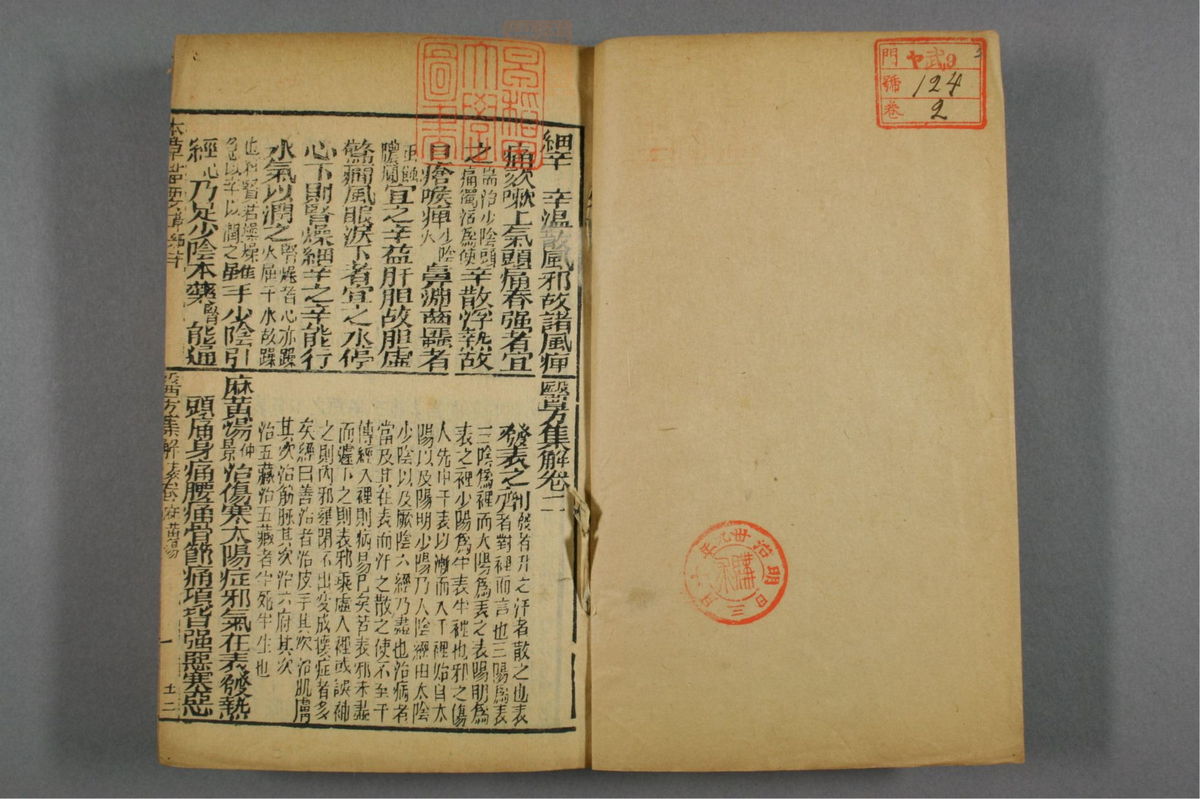 門 ヤ武9
號 124
卷 2
明治
細辛 辛溫散風邪故諸風痺
痛欬嗽上氣頭痛脊强者宜
之 痛獨活爲使 辛散浮熱故
喉痺 少陰火 鼻淵齒䘌者
宜之辛益肝胆故胆虛
驚癇風眼淚下者宜之水停
心下則腎燥細辛之辛能行
水氣以潤之 腎燥者心亦躁 火屈于水故躁
雖手少陰引
經 乃足少陰本藥 能通
醫方集解卷二
發表之劑 發者升之汗者散之也表
者對裡而言也三陽爲表
三陰爲裡而太陽爲表之表陽明爲
表之裡少陽爲半表半裡也邪之傷
人先中于表以漸而入于裡始自太
陽以及陽明少陽乃入陰經由太陰
少陰以及厥陰六經乃盡也治病者
當及其在表而汗之散之使不至于
傳經入裡則病易已矣若表邪未盡
而遽下之則表邪乘虛入裡或誤補
之則內邪壅閉不出變成壞症者多
矣經曰善治者治皮毛其次治肌膚
其次治筋脉其次治六府其次
治五藏治五藏者半死半生也
麻黃湯 仲景 治傷寒太陽症邪氣在表發熱
頭痛身痛腰痛骨節痛項背强惡寒惡
醫方集解